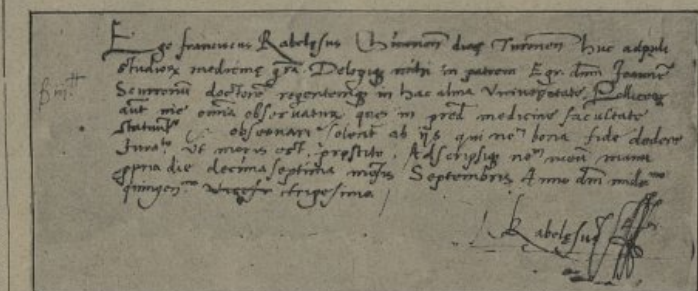 Ego franciscus Rabelęsus Chinonen̄ dioę Turonen̄ huc adpuli
studiorꝝ medicinę grā. Delegiqꝫ mihi in patrem Egr. dūm Joannē
Scurronū doctorē regentemqꝫ in hac alma Vniuersitate. Polliceor
aut me omnia obseruaturū quę in pred. medicine facultate
statuūt et obseruari solent ab ijs qui noē bona fide dedere
Iurato Vt moris est pręstito. Adscripsiqꝫ noē meū manu
ꝓpria die decima septima męsis Septembris Anno dm̄ mille.mo
quingen.mo trigesimo
Rabelęsus